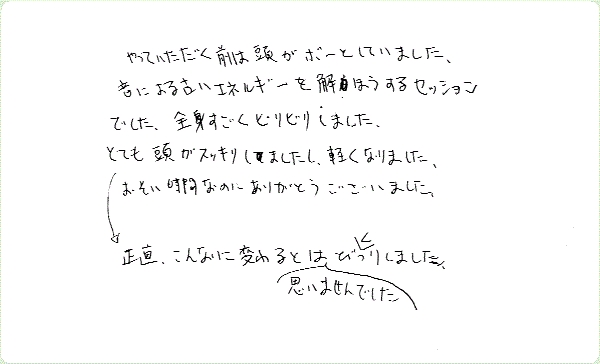 やっていただく前は頭がボーとしていました、
音による古いエネルギーを解ほうするセッション
でした、全身すごくビリビリしました、
とても頭がスッキリしましたし、軽くなりました、
おそい時間なのにありがとうございました、
正直、こんなに変わるとはびっくりしました、
思いませんでした